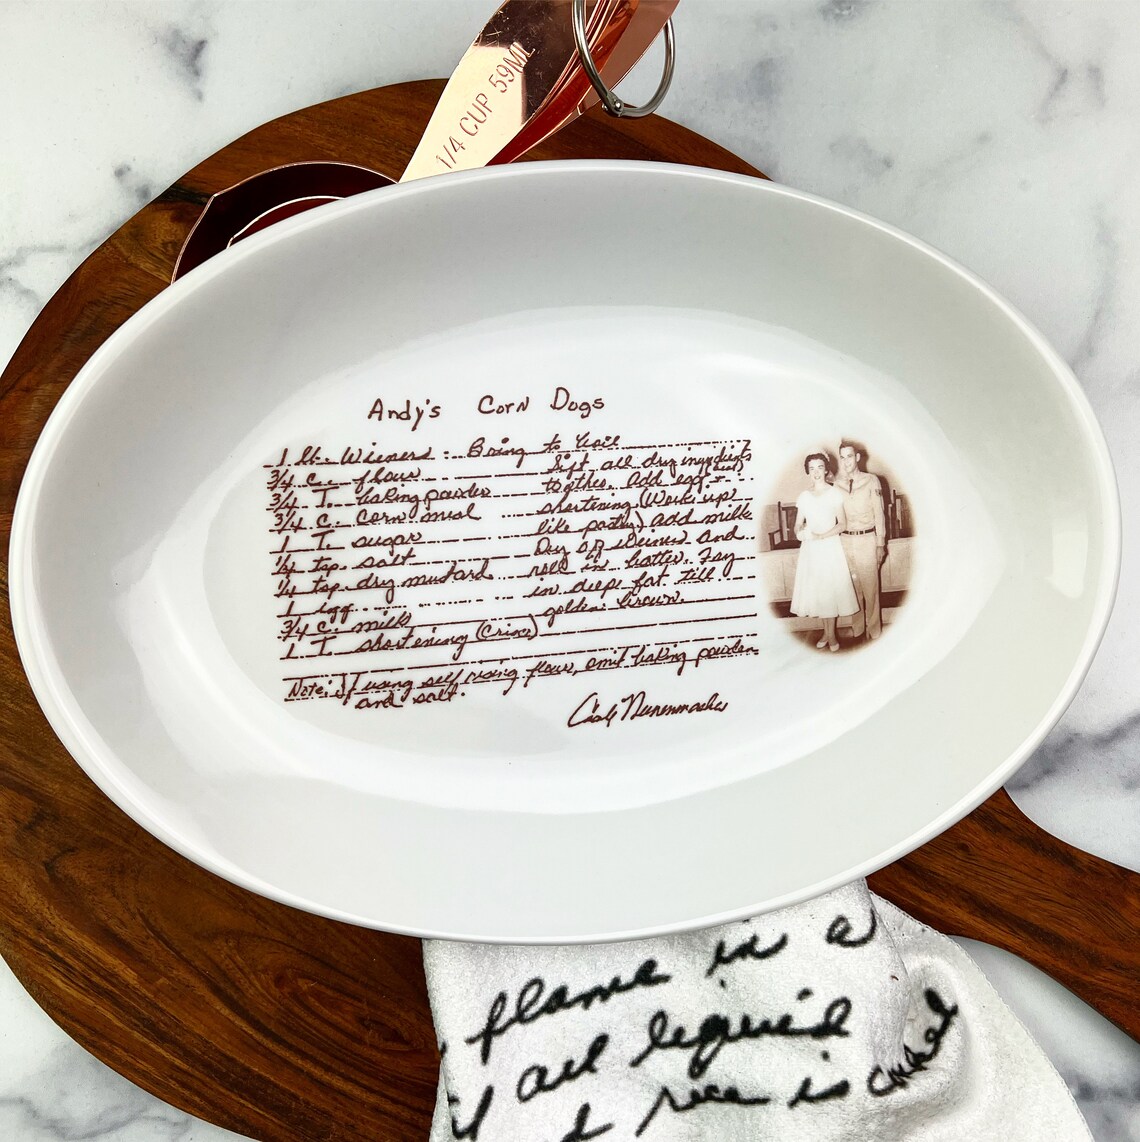 1/4 CUP 59ML
Andy's Corn Dogs
1 lb. Wieners - Bring to boil
3/4 c. flour Sift all dry ingredients
3/4 T. baking powder together. Add egg +
3/4 c. corn meal shortening (Work up
1 T. sugar like pastry) add milk
1/4 tsp. salt Dry off wieners and
1/4 tsp. dry mustard roll in batter. Fry
1 egg in deep fat till
3/4 c. milk golden brown.
1 T. shortening (Crisco)
Note: If using self rising flour, omit baking powder
and salt.
flame in a
all liquid
rice is cooked